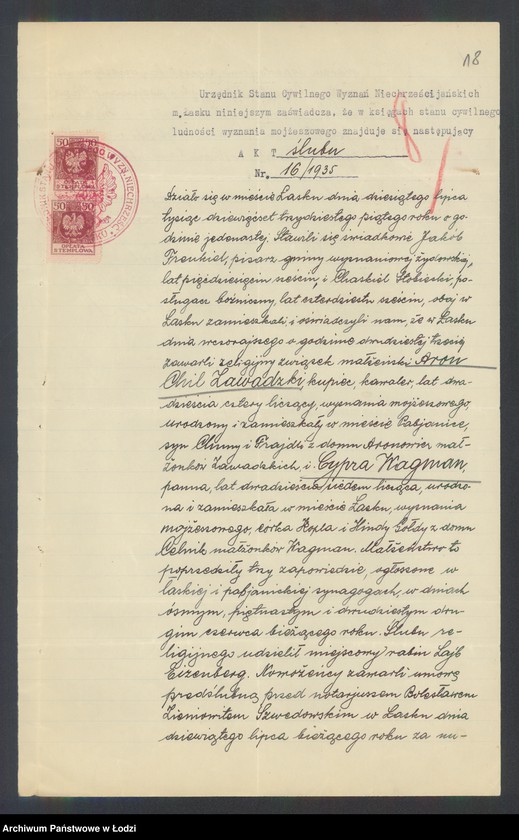 18
Urzędnik Stanu Cywilnego Wyznań Niechrześcijańskich
m.Łasku niniejszym zaświadcza, że w księgach stanu cywilnego
ludności wyznania mojżeszowego znajduje się następujący
A K T ślubu
Nr. 16/1935
50
OPŁATA
STEMPLOWA
50
OPŁATA
STEMPLOWA
Działo się w mieście Łasku dnia dziesiątego lipca
tysiąc dziewięćset trzydziestego piątego roku o go-
dzinie jedenastej. Stawili się świadkowie Jakób
Frenkiel, pisarz gminy wyznaniowej żydowskiej,
lat pięćdziesięciu sześciu, i Chaskiel Słobieski, po-
sługacz bóżniczny, lat czterdziestu sześciu, obaj w
Łasku zamieszkali i oświadczyli nam, że w Łasku
dnia wczorajszego o godzinie dwudziestej trzeciej
zawarli religijny związek małżeński Aron
Chil Zawadzki, kupiec, kawaler, lat dwa-
dzieścia cztery liczący, wyznania mojżeszowego,
urodzony i zamieszkały w mieście Pabjanice,
syn Chuny i Frajdli z domu Aronowicz mał-
żonków Zawadzkich, i Cypra Wagman,
panna, lat dwadzieścia siedem licząca, urodzo-
na i zamieszkała w mieście Łasku, wyznania
mojżeszowego, córka Kopla i Hindy Gołdy z domu
Celnik małżonków Wagman. Małżeństwo to
poprzedziły trzy zapowiedzie, ogłoszone w
łaskiej i pabjanickiej synagogach, w dniach
ósmym, piętnastym i dwudziestym dru-
gim czerwca bieżącego roku. Ślubu re-
ligijnego udzielił miejscowy rabin Lajb
Eizenberg. Nowożeńcy zawarli umowę
przedślubną przed notarjuszem Bolesławem
Ziemowitem Szwedowskim w Łasku dnia
dziewiątego lipca bieżącego roku za nu-
Archiwum Państwowe w Łodzi